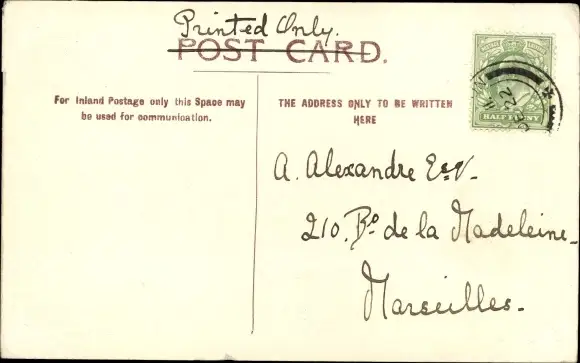 Printed Only.
POST CARD.
For Inland Postage only this Space may
be used for communication.
THE ADDRESS ONLY TO BE WRITTEN
HERE
A. Alexandre Esq.
210. Bd. de la Madeleine
Marseilles.
HALF PENNY
22